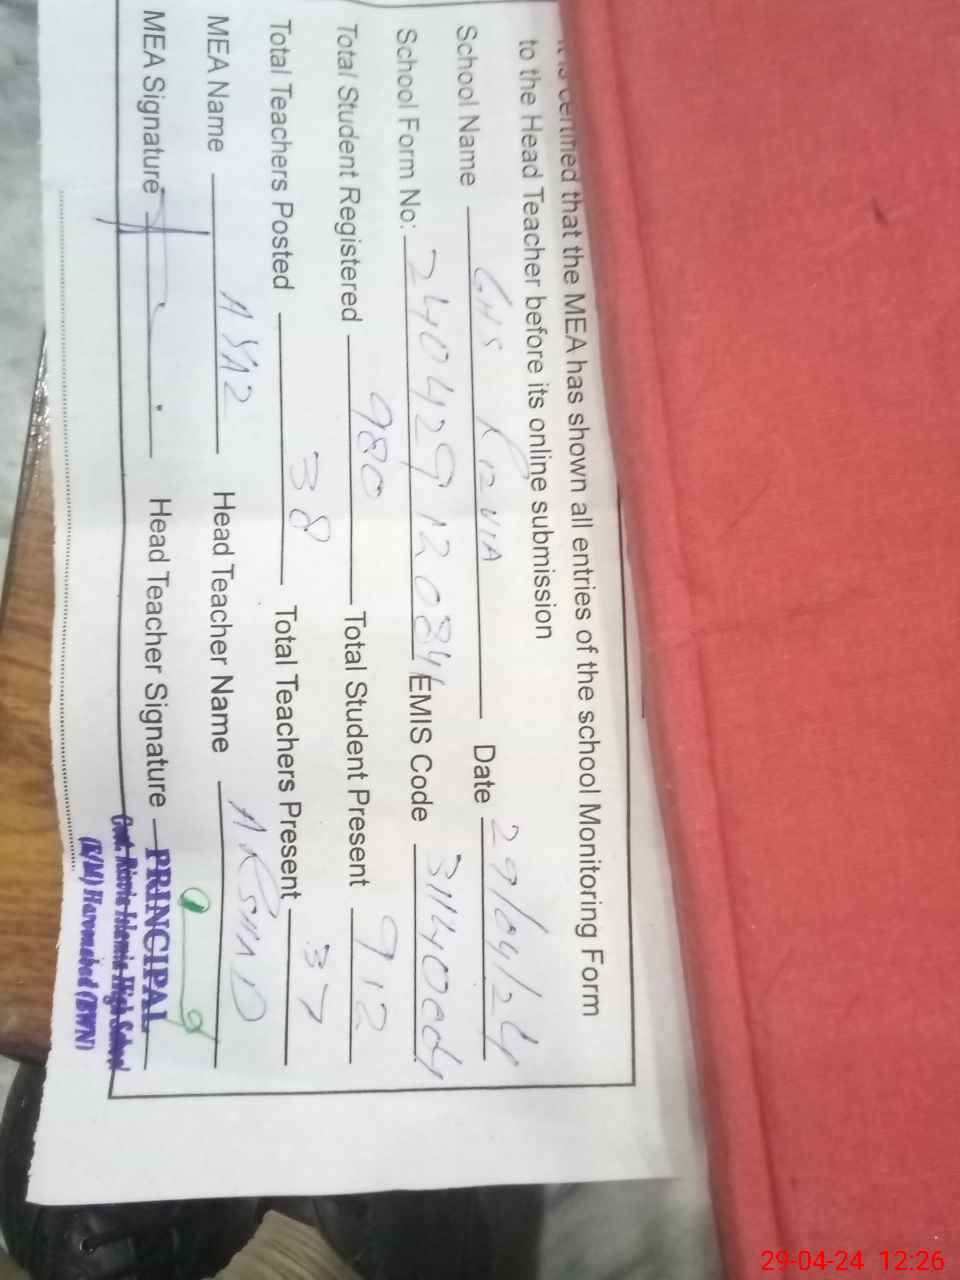 It is certified that the MEA has shown all entries of the school Monitoring Form
to the Head Teacher before its online submission
School Name GHS Rizvia Date 29/04/24
School Form No: 24042912084 EMIS Code 31140004
Total Student Registered 980 Total Student Present 912
Total Teachers Posted 38 Total Teachers Present 37
MEA Name Head Teacher Name ARSHAD
MEA Signature Head Teacher Signature PRINCIPAL
Govt. Rizvia Islamia High School
(E/M) Haroonabad (BWN)
29-04-24 12:26